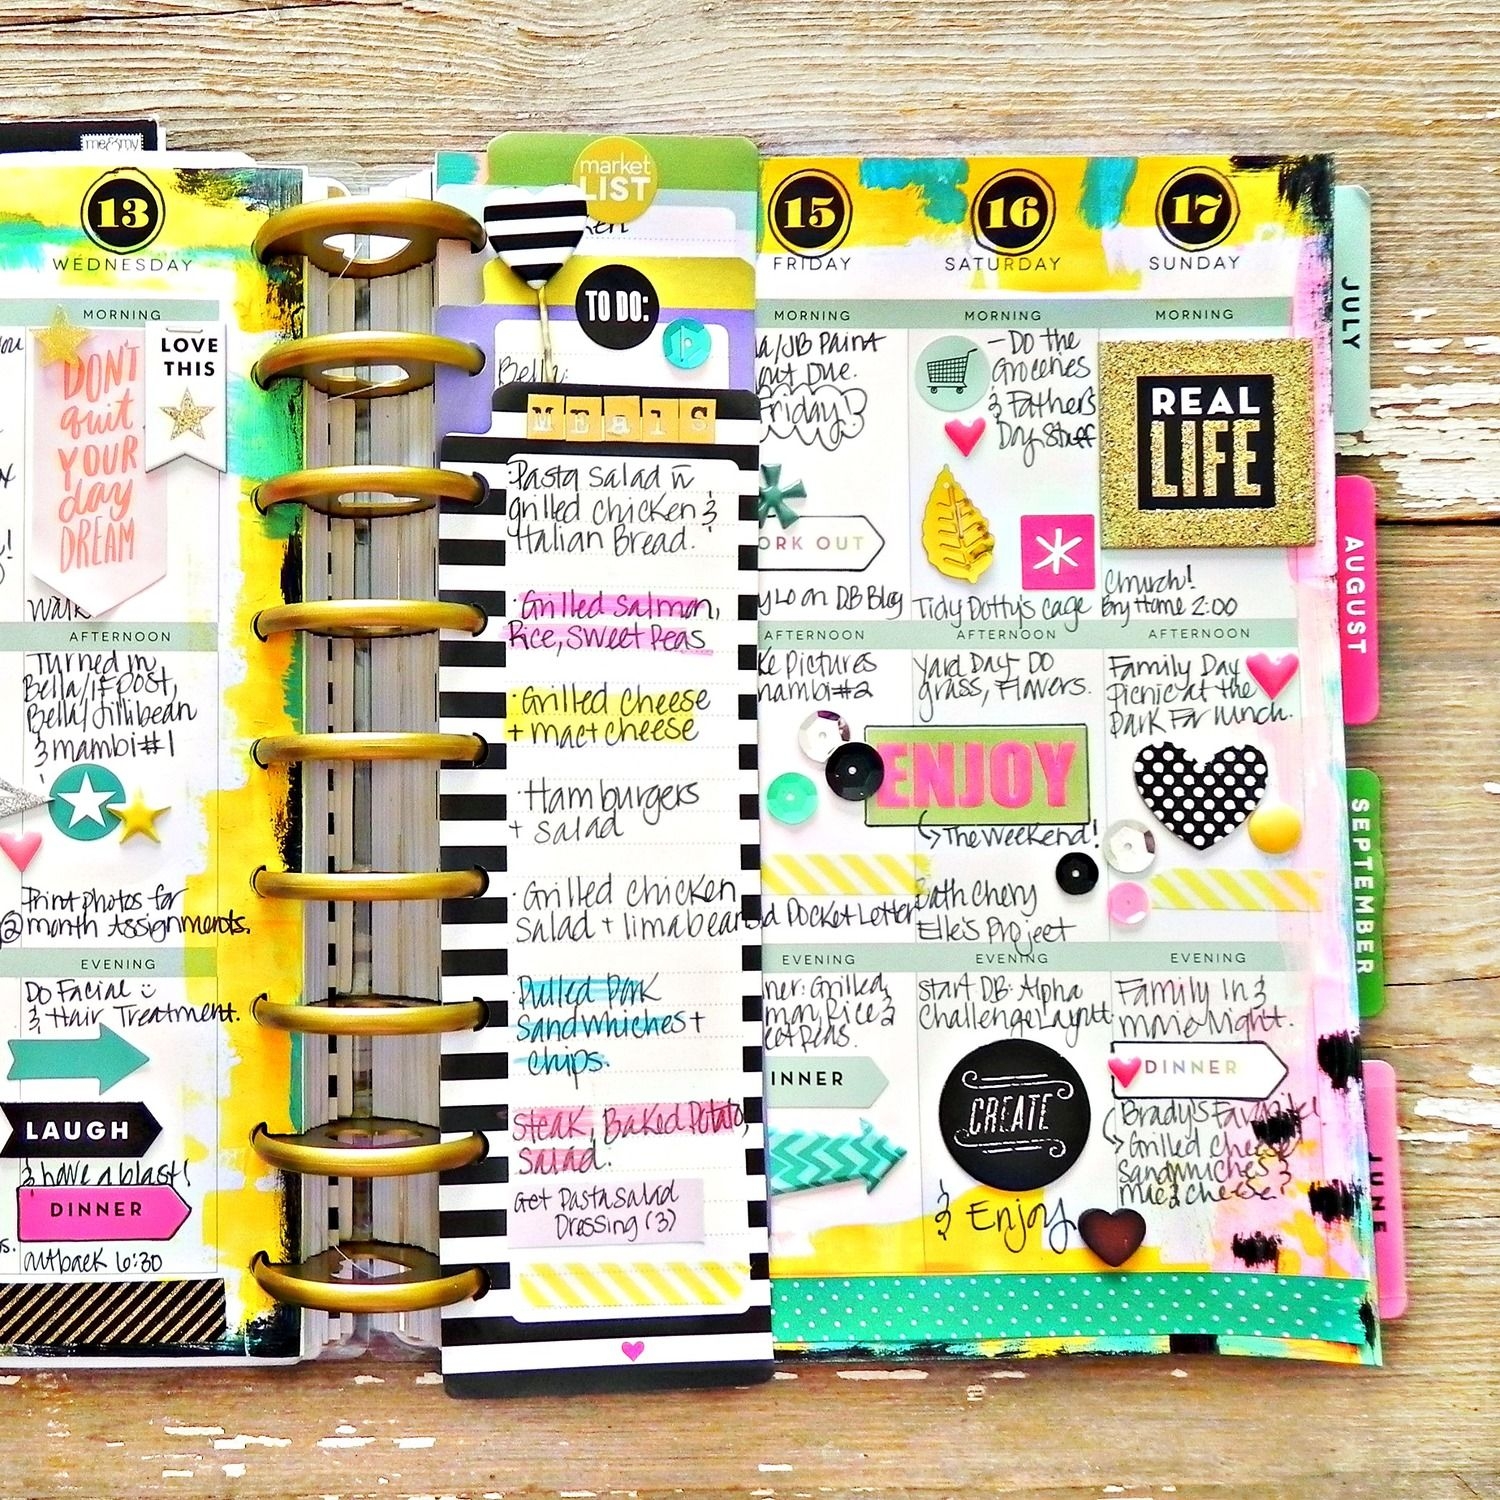 me & my
13
WEDNESDAY
MORNING
DON'T
quit
YOUR
day
DREAM
LOVE
THIS
Walk
AFTERNOON
Turned in
Bella/IF post,
Bella/Jillibean
& mambi #1
Print photos for
month Assignments.
EVENING
Do Facial
& Hair Treatment.
LAUGH
& have a blast!
DINNER
Outback 6:30
market
LIST
TO DO:
Bella:
MEALS
·Pasta Salad n
grilled chicken &
Italian Bread.
·Grilled Salmon,
Rice, Sweet Peas
·Grilled Cheese
+ mac+cheese
·Hamburgers
+ salad
·Grilled chicken
Salad + lima beans
·Pulled Pork
Sandwhiches +
chips.
Steak, Baked Potato,
Salad.
Get Pasta Salad
Dressing (3)
15
FRIDAY
MORNING
a/JB Paint
out Due.
Friday!
ORK OUT
LO on DB Blog
AFTERNOON
ke Pictures
mambi #2
d Pocket Letter
EVENING
ner: Grilled
mon, Rice &
eet Peas.
INNER
16
SATURDAY
MORNING
-Do the
Groceries
& Fathers
Day Stuff
Tidy Dotty's cage
AFTERNOON
Yard Day- Do
grass, Flowers.
ENJOY
The Weekend!
Bath Chevy
Elle's Project
EVENING
Start DB: Alpha
Challenge Layout.
CREATE
& Enjoy
17
SUNDAY
MORNING
REAL
LIFE
Church!
By Home 2:00
AFTERNOON
Family Day
Picnic at the
Park For lunch.
EVENING
Family In &
movie Night.
DINNER
Brady's Favorite!
Grilled Cheese
Sandwiches &
mac & cheese.
JULY
AUGUST
SEPTEMBER
JUNE